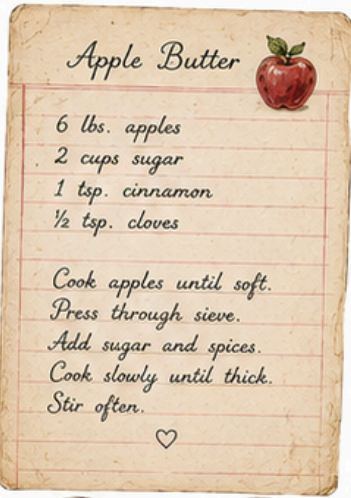 Apple Butter
6 lbs. apples
2 cups sugar
1 tsp. cinnamon
½ tsp. cloves
Cook apples until soft.
Press through sieve.
Add sugar and spices.
Cook slowly until thick.
Stir often.